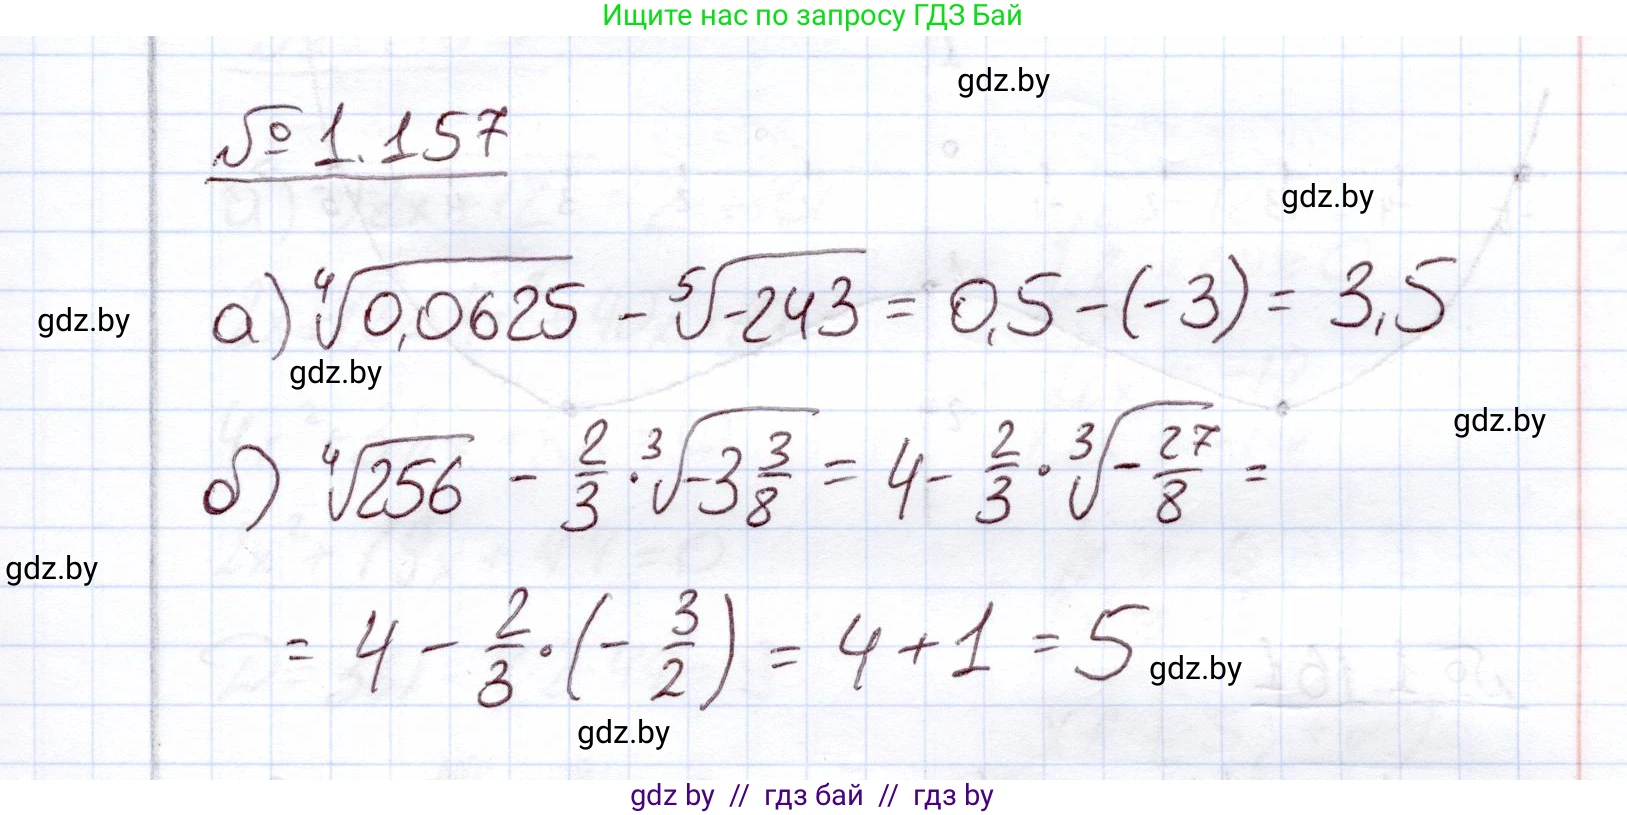 Ищите нас по запросу ГДЗ Бай
gdz.by
№ 1.157
gdz.by
а) ⁴√0,0625 - ⁵√-243 = 0,5 - (-3) = 3,5
gdz.by
gdz.by
gdz.by
б) ⁴√256 - 2/3 · ³√-3 3/8 = 4 - 2/3 · ³√-27/8 =
gdz.by
= 4 - 2/3 · (-3/2) = 4 + 1 = 5
gdz.by
gdz.by
gdz by // гдз бай // гдз by